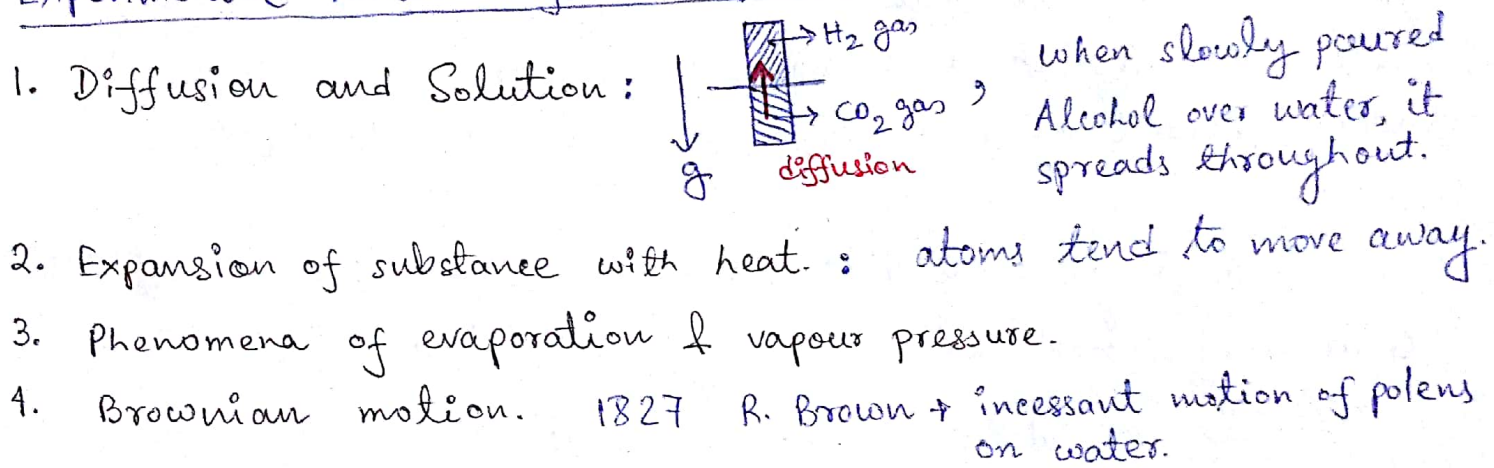 1. Diffusion and Solution :
g
H₂ gas
CO₂ gas ,
diffusion
when slowly poured
Alcohol over water, it
spreads throughout.
2. Expansion of substance with heat. : atoms tend to move away.
3. Phenomena of evaporation & vapour pressure.
4. Brownian motion. 1827 R. Brown → incessant motion of polens
on water.